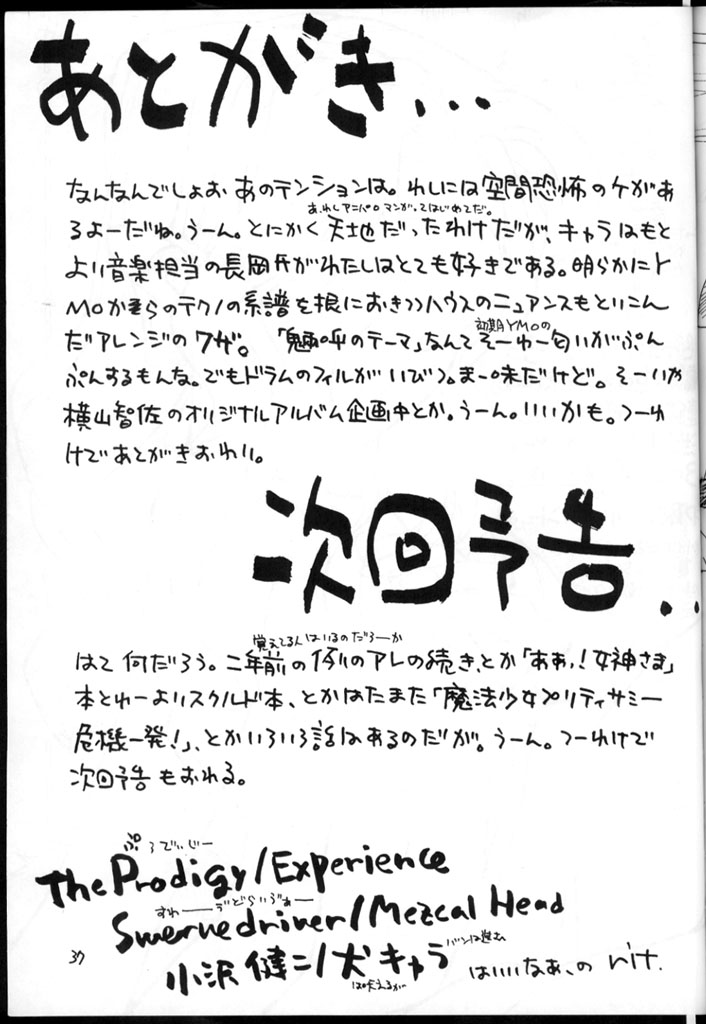 あとがき...
なんなんでしょお あのテンションは。わしには空間恐怖のケがあ
お、わしアニパロマンガってはじめてだ。
るよーだね。うーん。とにかく天地だったわけだが、キャラはもと
より音楽担当の長岡氏がわたしはとても好きである。明らかにY
MOからのテクノの系譜を根におきつつハウスのニュアンスもとりこん
初期YMOの
だアレンジのワザ。「魎呼のテーマ」なんてそーゆー匂いがぷん
ぷんするもんな。でもドラムのフィルがいびつ。ま一味だけど。そーいや
横山智佐のオリジナルアルバム企画中とか。うーん。いいかも。つーわ
けであとがきおわり。
次回予告..
覚えてる人はいるのだろーか
はて何だろう。二年前の例のアレの続き、とか「ああっ!女神さま」
本とゆーよりスクルド本、とかはたまた「魔法少女プリティサミー
危機一発!」、とかいろいろ話はあるのだが。うーん。つーわけで
次回予告もおわる。
ぷろでぃじー
The Prodigy/Experience
すわーヴどらいヴぁー
Swervedriver/Mezcal Head
小沢健二/犬キャラ はいいなあ、の
は吠えるが
37